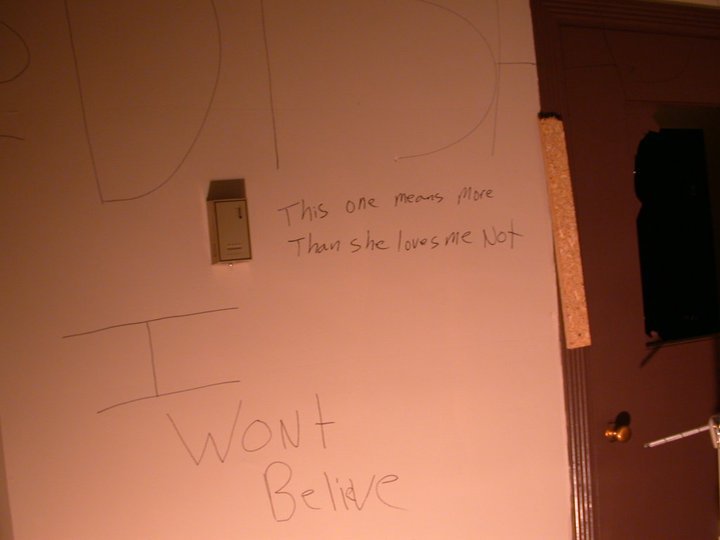 This one means More
Than she loves me Not
I
WONt
Belive